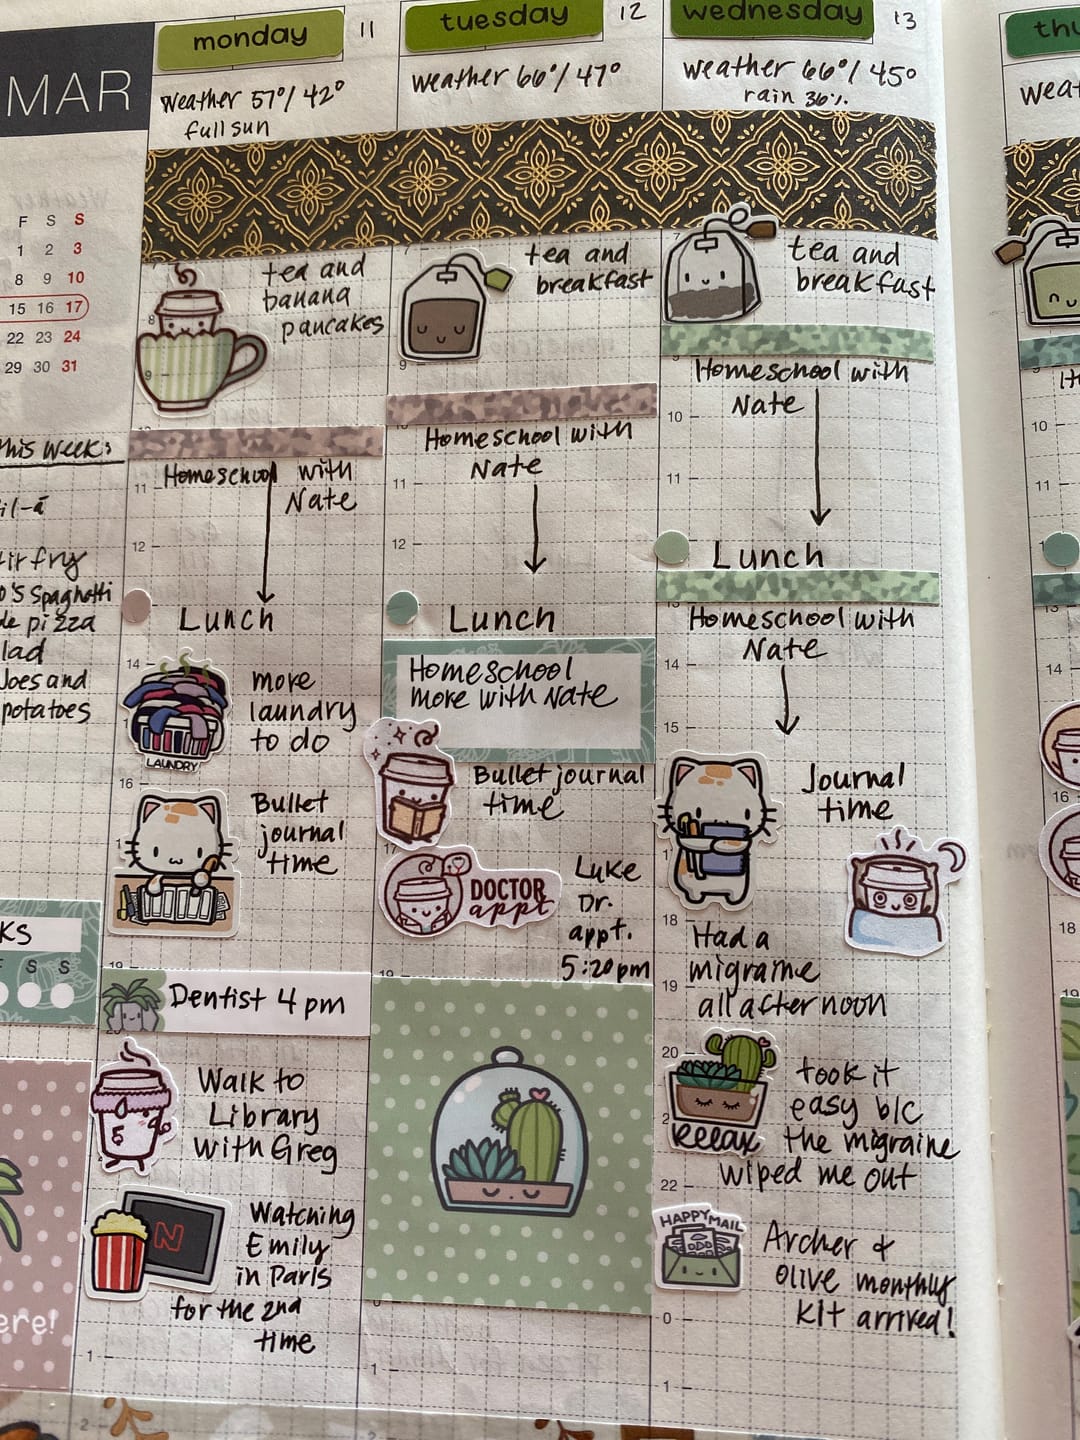 MAR
F S S
1 2 3
8 9 10
15 16 17
22 23 24
29 30 31
This week:
Spaghetti
pizza
Joes and
potatoes
F S S
monday 11
weather 57°/42°
full sun
tea and
banana
pancakes
8
9
Homeschool with
Nate
11
12
Lunch
14
more
laundry
to do
LAUNDRY
16
Bullet
journal
time
19
Dentist 4 pm
Walk to
Library
with Greg
N
Watching
Emily
in Paris
for the 2nd
time
1
2
tuesday 12
weather 66°/47°
7
tea and
breakfast
9
Homeschool with
Nate
11
12
Lunch
Homeschool
more with Nate
Bullet journal
time
DOCTOR
appt
Luke
Dr.
appt.
5:20pm
19
0
1
wednesday 13
weather 66°/45°
rain 36%
7
tea and
breakfast
9
Homeschool with
Nate
10
11
Lunch
13
Homeschool with
Nate
14
15
Journal
time
18
Had a
migraine
19
all afternoon
20
took it
easy b/c
RELAX the migraine
wiped me out
22
HAPPY MAIL
Archer &
Olive monthly
kit arrived!
0
1
thu
10
11
13
14
16
18
19